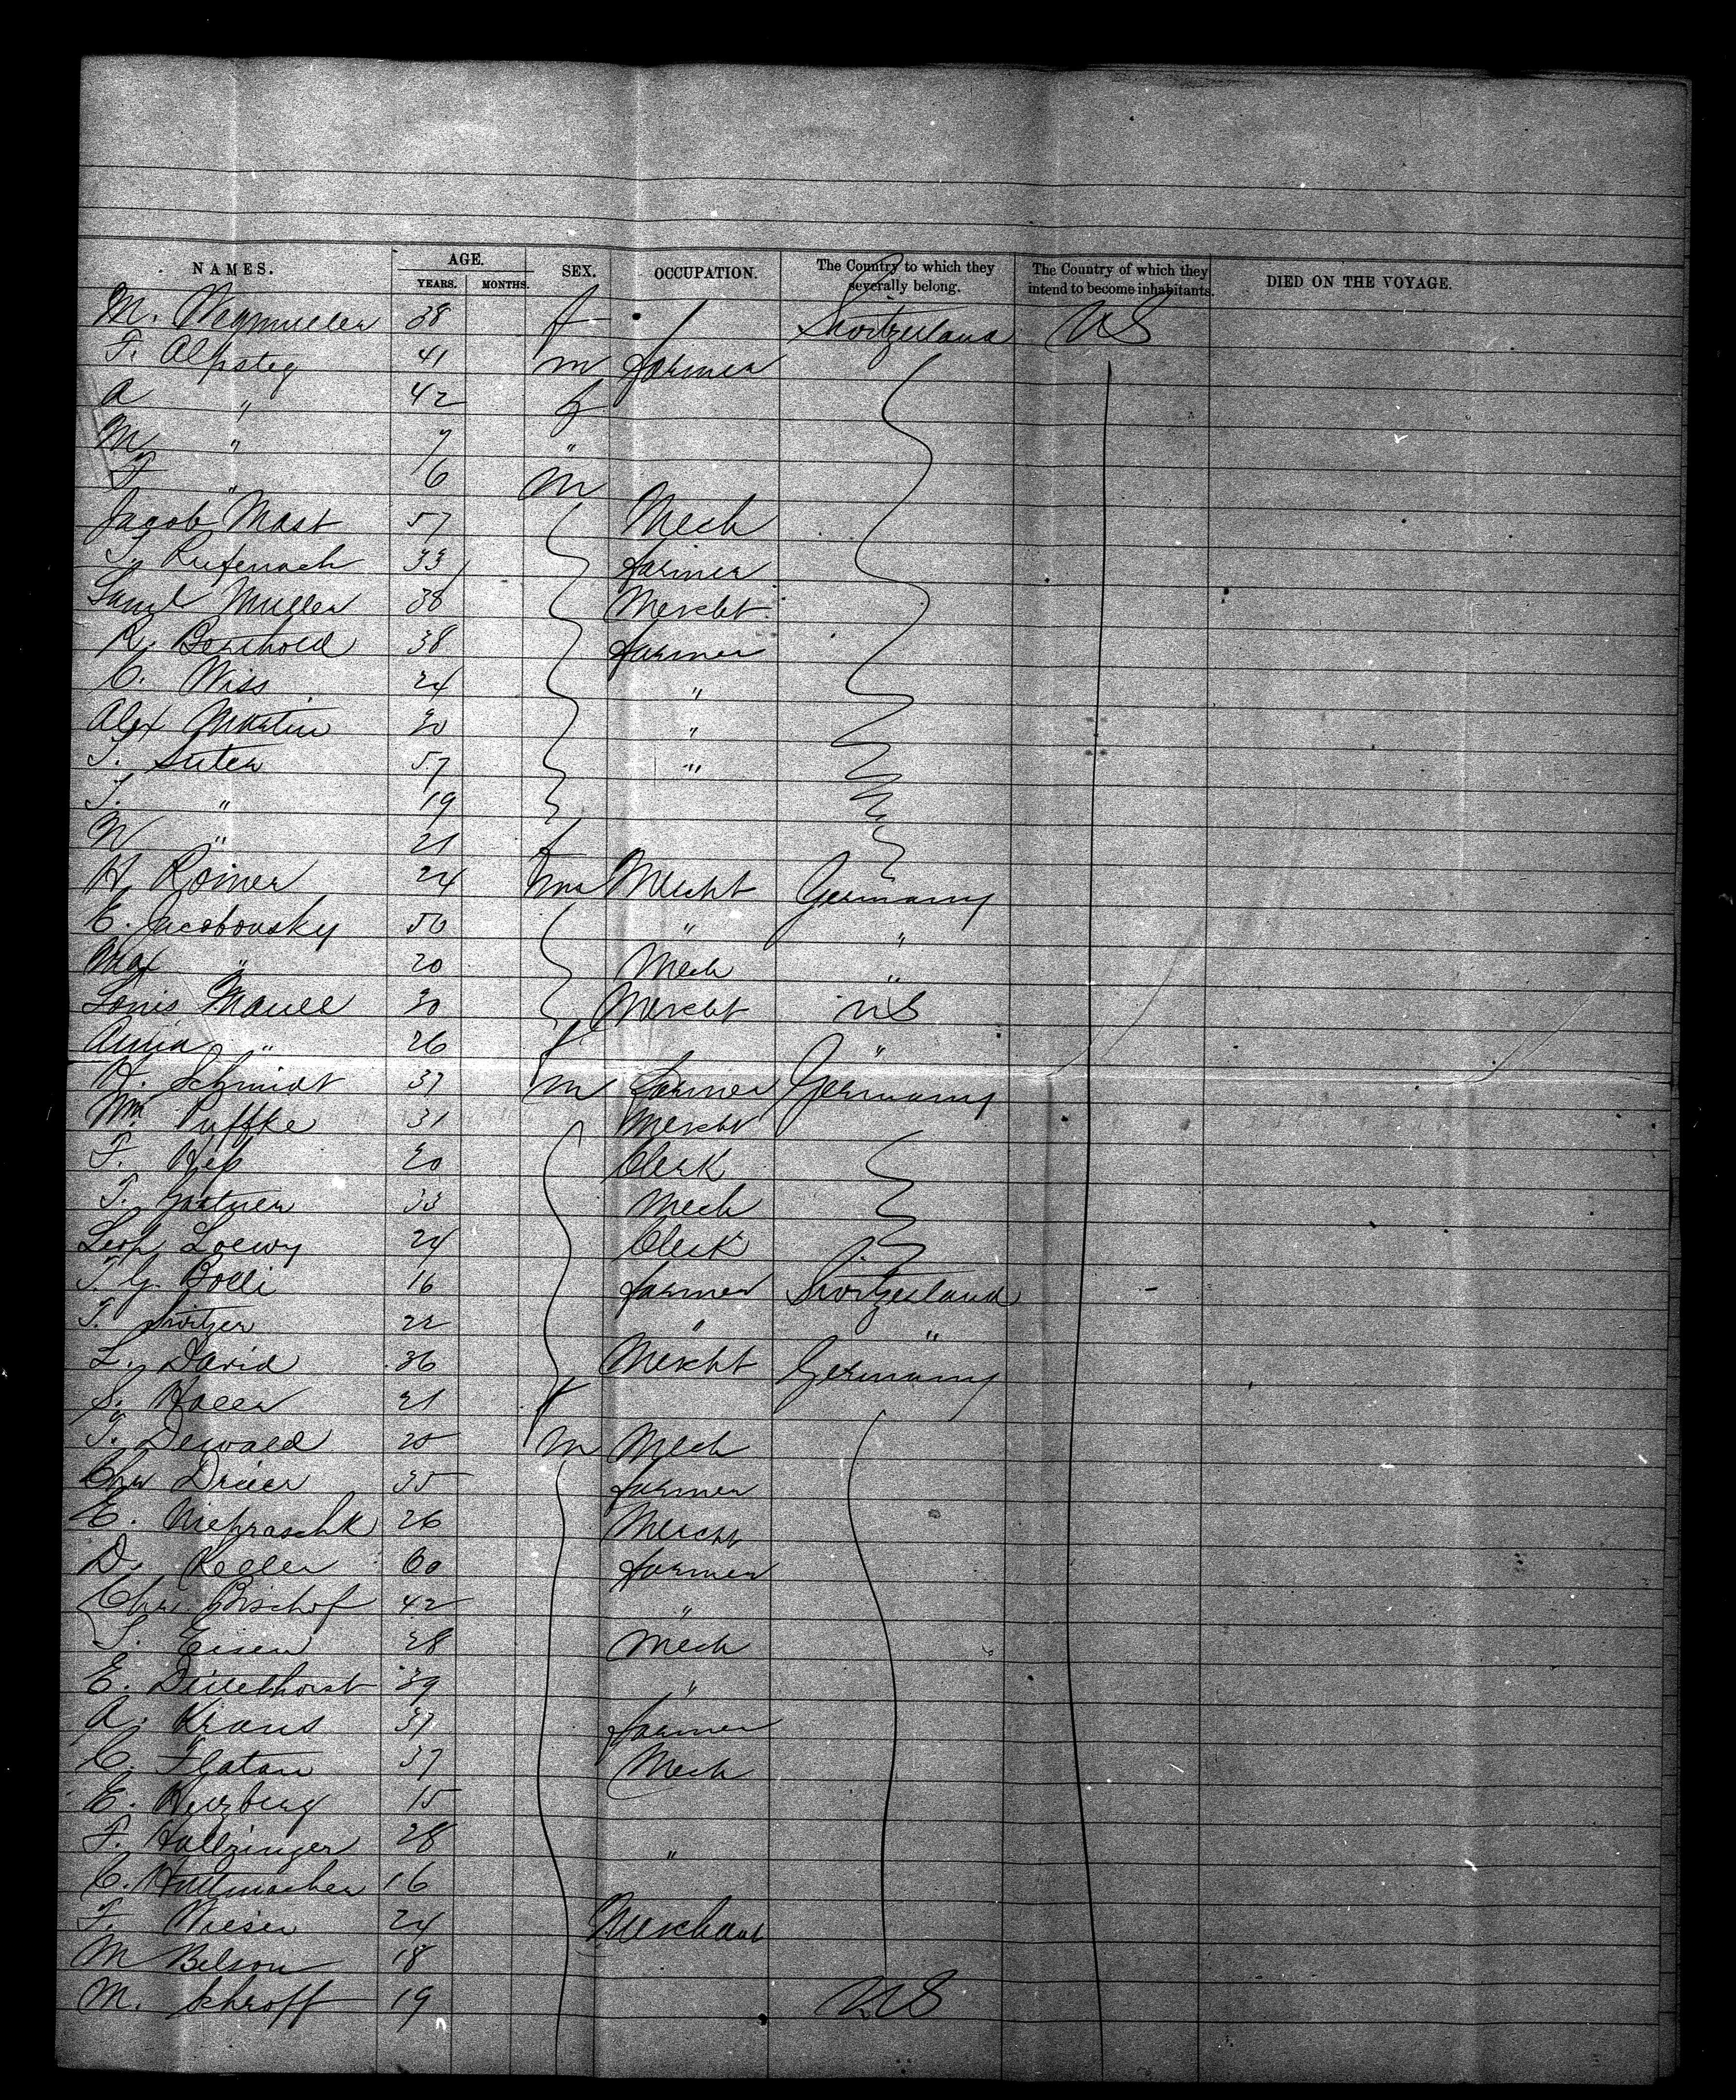 NAMES. AGE. YEARS. MONTHS. SEX. OCCUPATION. The Country to which they severally belong. The Country of which they intend to become inhabitants. DIED ON THE VOYAGE.
M. Wegmueller 38 f / Switzerland US
F. Alpsteg 41 m farmer
A " 42 f
M " 7 "
F " 6 m
Jacob Mast 57 Mech
J. Rufenach 33 farmer
Saml Muller 38 Mercht
R. Berthold 38 farmer
C. Wiss 24 "
Alex Martin 30 "
J. Suter 57 "
J. " 19
W " 21 f
H Römer 24 m Mercht Germany
E. Jacobousky 50 " "
Max " 20 Mech "
Louis Maull 30 Mercht US
Anna " 26 f "
H. Schmidt 37 m Farmer Germany
Wm. Puffke 31 Mercht
F. Hess 20 Clerk
J. Gartner 33 Mech
Leop. Loewy 24 Clerk
J. G. Bolli 16 farmer Switzerland
J. Switzer 22 " "
L. David 36 Mercht Germany
S. Haller 21 f
J. Dewald 25 m Mech
Chr Drier 35 farmer
E. Niepraschk 26 Mercht
D. Keller 60 farmer
Chr. Bischof 42 "
J. Eisen 28 Mech
E. 39 "
A. Kraus 37 farmer
C. Flatau 37 Mech
E. Herzberg 15
F. Hallzinger 28 "
C. Huttmacher 16
F. Wieser 24 Merchant
M Belson 18
M. Schroff 19 US